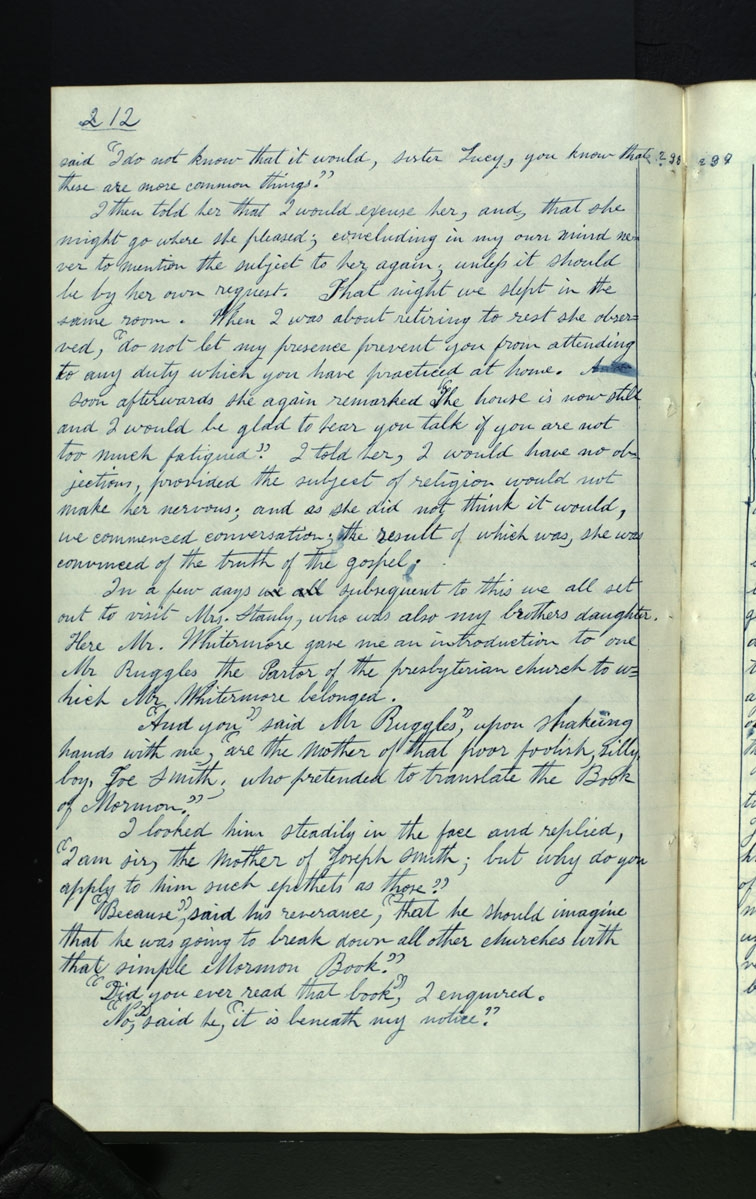 212
said "I do not know that it would, sister Lucy, you know that 298 298
these are more common things."
I then told her that I would excuse her, and, that she
might go where she pleased; concluding in my own mind ne=
ver to mention the subject to her again; unless it should
be by her own request. That night we slept in the
same room. When I was about retiring to rest she obser=
ved, "do not let my presence prevent you from attending
to any duty which you have practiced at home.
soon afterwards she again remarked "The house is now still
and I would be glad to hear you talk if you are not
too much fatigued". I told her, I would have no ob=
jections, provided the subject of religion would not
make her nervous; and as she did not think it would,
we commenced conversation; the result of which was, she was
convinced of the truth of the gospel.
In a few days we all subsequent to this we all set
out to visit Mrs. Stanly, who was also my brothers daughter.
Here Mr. Whitermore gave me an introduction to one
Mr Ruggles the Pastor of the presbyterian church to w=
hich Mr. Whitermore belonged.
"And you" said Mr Ruggles", upon shakeing
hands with me, "are the Mother of that poor foolish, Silly,
boy, Joe Smith; who pretended to translate the Book
of Mormon."
I looked him steadily in the face and replied,
"I am sir, the Mother of Joseph Smith; but why do you
apply to him such epithets as those?"
"Because", said his reverance, "that he should imagine
that he was going to break down all other churches with
that simple Mormon Book."
"Did you ever read that book", I enquired.
"No," said he, "it is beneath my notice."